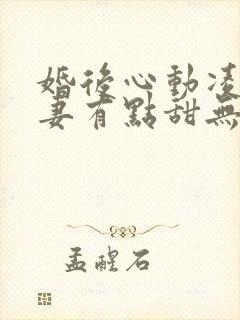 婚後心動凌
妻有點甜無
孟醒石